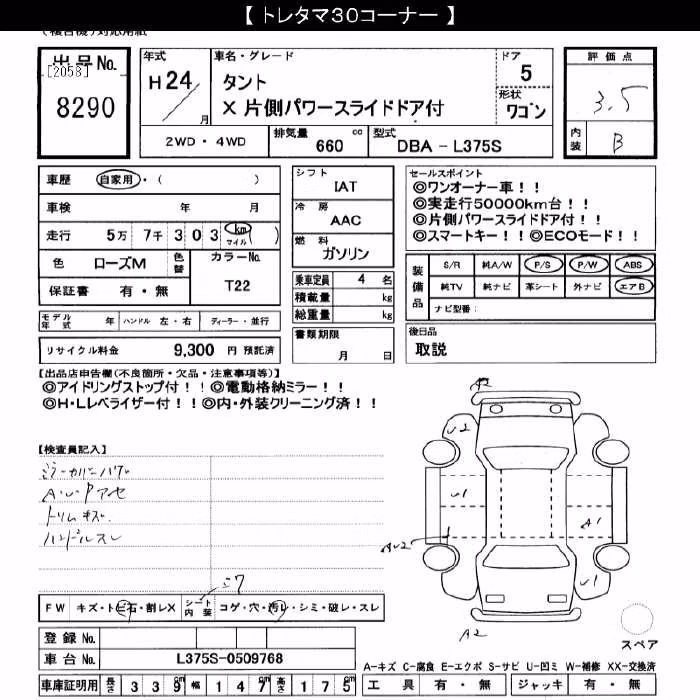 【 トレタマ30コーナー 】
(複合機)対応用紙
出品No.
[2058]
8290
年式
H24
月
車名・グレード
タント
X 片側パワースライドドア付
ドア
5
形状
ワゴン
評価点
3.5
内装
B
2WD・4WD
排気量
660 cc
型式
DBA - L375S
車歴 自家用・( )
車検 年 月
走行 5万 7千 3 0 3 km マイル ( )
色 ローズM 色替 カラーNo.
T22
保証書 有・無
モデル年式 年 ハンドル 左・右 ディーラー・並行
リサイクル料金 9,300 円 預託済
シフト
IAT
冷房
AAC
燃料
ガソリン
乗車定員 4 名
積載量 kg
総重量 kg
書類期限
月 日
セールスポイント
◎ワンオーナー車!!
◎実走行50000km台!!
◎片側パワースライドドア付!!
◎スマートキー!!◎ECOモード!!
装備品
S/R 純A/W P/S P/W ABS
純TV 純ナビ 革シート 外ナビ エアB
ナビ型番:
後日品
取説
【出品店申告欄(不良箇所・欠品・注意事項等)】
◎アイドリングストップ付!!◎電動格納ミラー!!
◎H・Lレベライザー付!!◎内・外装クリーニング済!!
【検査員記入】
ミラーカバーハゲ
A・U・Pアセ
トリムキズ
ハンドルスレ
FW キズ・トビ石・割レX シート内装 コゲ・穴・汚レ・シミ・破レ・スレ
登録No.
車台No. L375S-0509768
車庫証明用 長さ 3 3 9 cm 幅 1 4 7 cm 高さ 1 7 5 cm
U2
U1
A1
AU2
U1
A2
スペア
A-キズ C-腐食 E-エクボ S-サビ U-凹ミ W-補修 XX-交換済
工具 有・無 ジャッキ 有・無